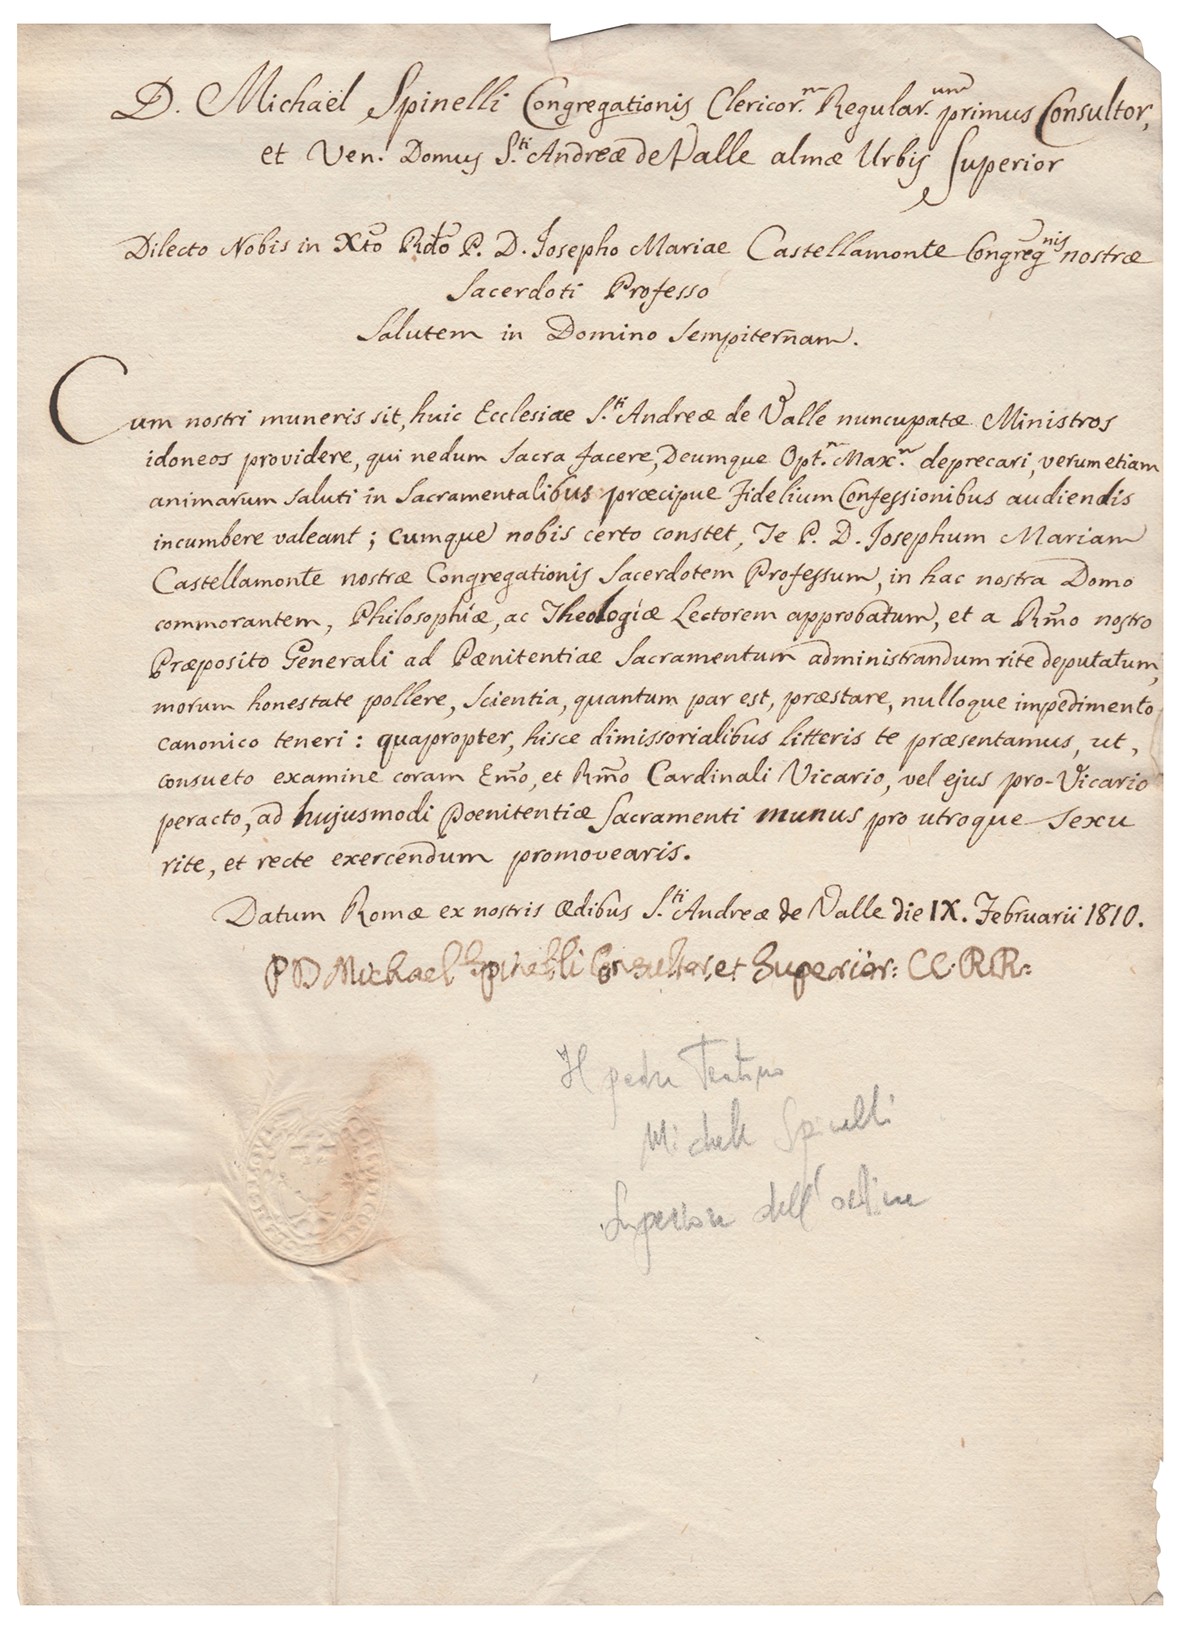 D. Michaël Spinelli Congregationis Clericor.m Regular.um primus Consultor,
et Ven. Domus S.ti Andreæ de Valle almæ Urbis Superior
Dilecto Nobis in Xto Rdo P. D. Josepho Mariae Castellamonte Congreg.nis nostræ
Sacerdoti Professo
Salutem in Domino sempiternam.
Cum nostri muneris sit, huic Ecclesiae S.ti Andreæ de Valle nuncupatæ Ministros
idoneos providere, qui nedum sacra facere, Deumque Opt.m Max.m deprecari, verum etiam
animarum saluti in Sacramentalibus præcipue fidelium Confessionibus audiendis
incumbere valeant; cumque nobis certo constet, Te P. D. Josephum Mariam
Castellamonte nostræ Congregationis Sacerdotem Professum, in hac nostra Domo
commorantem, Philosophiæ, ac Theologiæ Lectorem approbatum, et a Rmo nostro
Præposito Generali ad Pænitentiae Sacramentum administrandum rite deputatum,
morum honestate pollere, scientia, quantum par est, præstare, nulloque impedimento
canonico teneri: quapropter, hisce dimissorialibus litteris te præsentamus, ut,
consueto examine coram Emo, et Rmo Cardinali Vicario, vel ejus pro-Vicario
peracto, ad hujusmodi Poenitentiæ Sacramenti munus pro utroque sexu
rite, et recte exercendum promovearis.
Datum Romæ ex nostris ædibus S.ti Andreæ de Valle die IX. Februarii 1810.
P D Michael Spinelli Consultor, et Superior: CC. RR:
Il padre Teatino
Michele Spinelli
Superiore dell'ordine